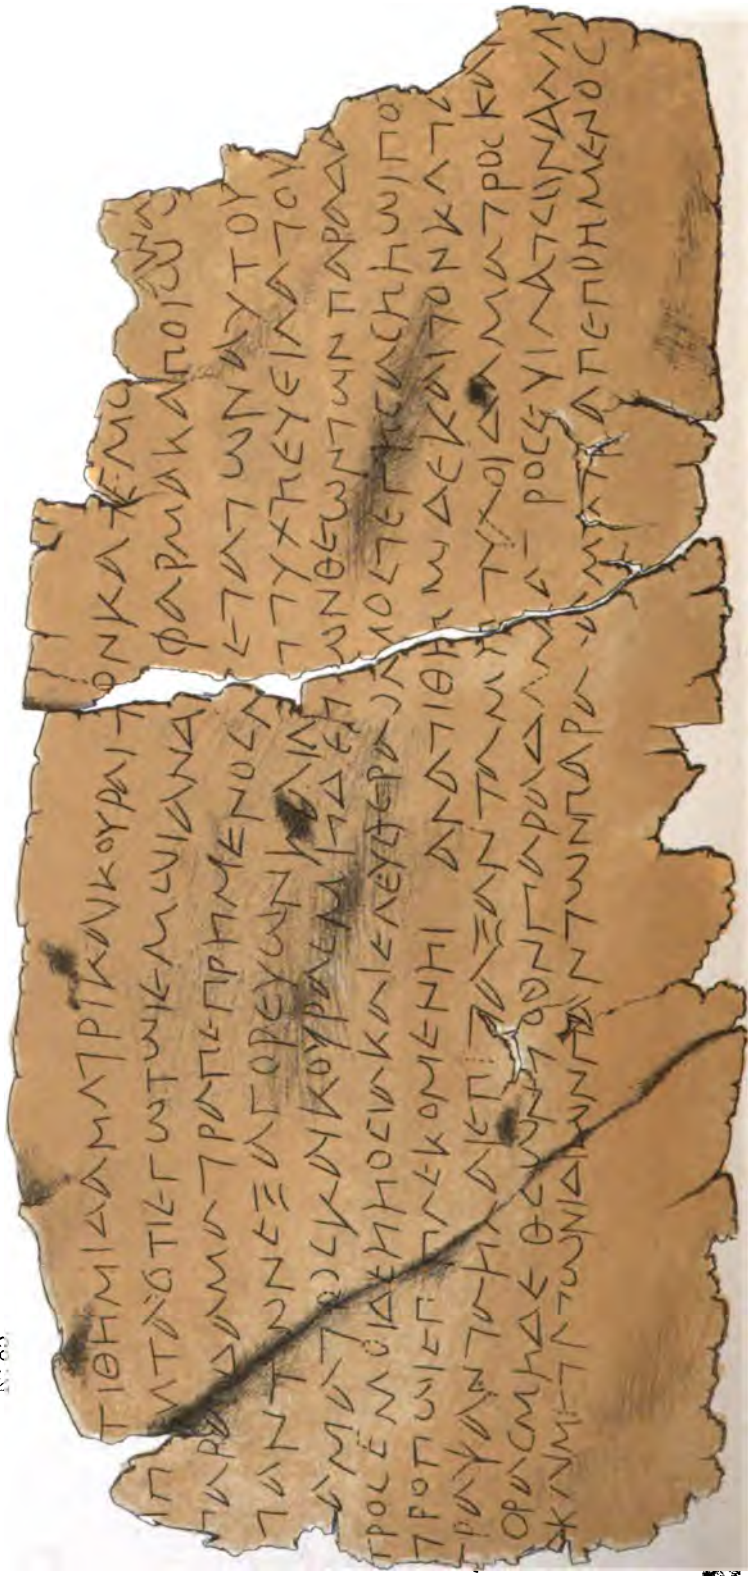 ΤΙΘΗΜΙΔΑΜΑΤΡΙΚΑΙΚΟΥΡΑΙΤΟΝΚΑΤΕΜΟ
ΙΠ ΝΤΑΟΤΙΕΓΩΤΩΙΕΜΩΙΑΝΔ ΦΑΡΜΑΚΑΠΟΙΩ
ΠΑΡΑΔΑΜΑΤΡΑΠΕΠΡΗΜΕΝΟϹ ΕΤΑΤΩΝΑΥΤΟΥ
ΠΑΝΤΩΝΕΞΑΓΟΡΕΥΩΝΚΑΙΜ ΤΥΧΗΕΥΕΙΛΑΤΟΥ
ΑΜΑΤΡΟϹΚΑΙΚΟΥΡΑϹΜΗΔΕΤΩΝΘΕΩΝΤΩΝΠΑΡΑΔΑ
ΤΡΟϹΕΜΟΙΔΕΗΗΟϹΙΑΚΑΙΕΛΕΥΘΕΡΑΟΜΟϹΤΕΓΗϹΑϹΗΗΩΙΠΟ
ΤΡΟΠΩΙΕΠΙΠΛΕΚΟΜΕΝΗΙ ΑΝΑΤΙΘΗΜΙΔΕΚΑΙΤΟΝΚΑΤ
ΓΡΑΨΑΝΤΑΗΚΑΙΕΠΙΤΑΞΑΝΤΑΜΗΤΥΧΟΙΔΑΜΑΤΡΟϹΚΑ
ΟΡΑϹΜΗΔΕΘΕΩΝΤΩΝΠΑΡΑΔΑΜΑΤΡΟϹΕΥΙΛΑΤΩΝΑΛΛ
ΑΚΑΙΜΕΤΑΤΩΝΙΔΙΩΝΠΑΝΤΩΝΠΑΡΑΔΑΜΑΤΡΑΠΕΠΡΗΜΕΝΟϹ